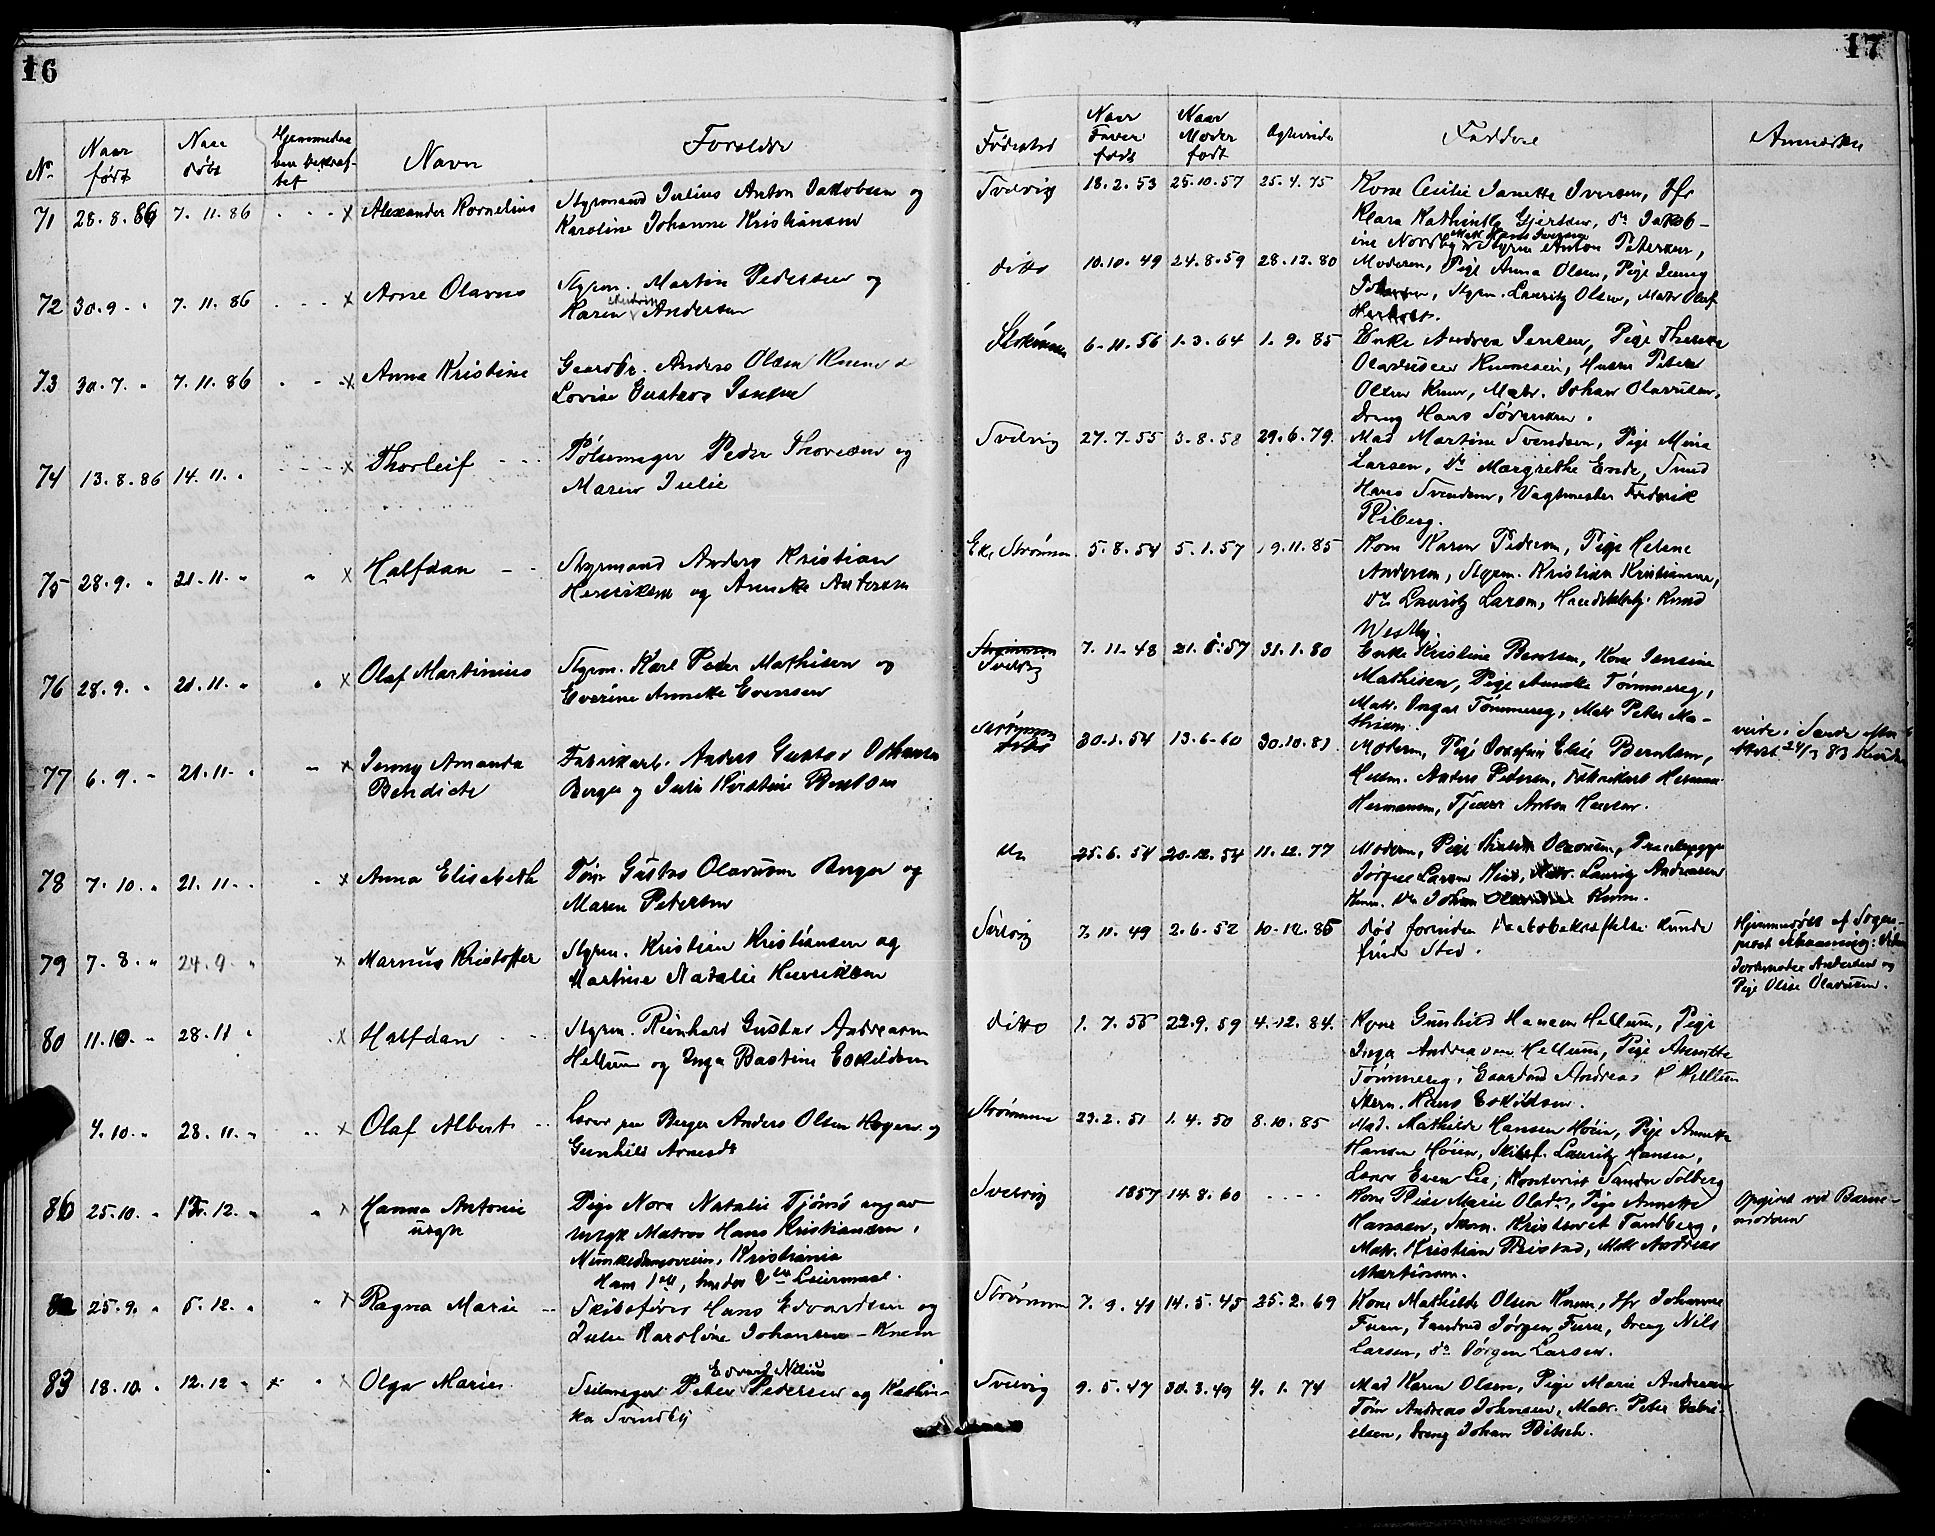 16
No
Naar født
Naar døbt
Navn
Forældre
71 28.8.86 7.11.86 x Alexander Kornelius Styrmand Julius Anton Jakobsen og
Karoline Johanne Kristiansen
72 30.9. " 7.11.86 x Arne Olavus Styrm. Martin Pedersen og
Karen Andersen
73 30.7. " 7.11.86 x Anna Kristine Gaardbr. Anders Olsen Knem &
Lovise Gustava Jensen
74 13.8.86 14.11. " x Thorleif Pølsemager Peder Thoresen og
Maren Julie
75 28.9. " 21.11. " " x Halfdan Styrmand Anders Kristian
Henriksen og Anneke Andersen
76 28.9. " 21.11. " " x Olaf Martinius Styrm. Karl Peder Mathisen og
Everine Anneke Evensen
77 6.9. " 21.11. " " x Jenny Amanda Fabrikarb. Anders Gustav Johansen
Bendicte Berger og Julie Kirstine Bentsen
78 7.10. " 21.11. " " x Anna Elisabeth Tøm Gustav Olavusen Berger og
Maren Petersen
79 7.8. " 24.9. " x Marius Kristoffer Styrm. Kristian Kristiansen og
Martine Natalie Henriksen
80 11.10. " 28.11 " x Halfdan Styrm. Reinhard Gustav Andreasen
Hellum og Inga Bastine Eskildsen
4.10. " 28.11. " x Olaf Albert Lærer paa Berger Anders Olsen Hogen og
Gunhild Arnesdt
86 25.10. " 12.12. " " x Hanna Antonie Pige Nora Natalie Tjømø ungav
uægte Matros Hans Kristiansen,
Munkedamsveien, Kristiania
Hans 1ste, hendes 2det Leiermaal.
25.9. " 5.12. " " x Ragna Marie Skibsfører Hans Edvardsen og
Julie Karoline Johansen - Knem
83 18.10. " 12.12 " x " x Olga Marie Edvard Nilius
Seilmager Peter Pedersen og Kathin-
ka Svendby
17
Fødested
Naar Fader født
Naar Moder født
Faddere
Svelvig 18.2.53 25.10.57 25.4.75 Kone Cecilie Janette Iversen, Jfr
Klara Kathinka Gjertsen, do Jakob-
ine Nordby, Styrm Anton Petersen,
ditto 10.10.49 24.8.59 28.12.80 Moderen, Pige Anna Olsen, Pige Jenny
Johansen, Styrm. Lauritz Olsen, Matr Olaf
Strømmen 6.11.56 1.3.64 1.9.85 Enke Andrea Jensen, Pige Therese
Olavusen Knemsen, Husm Peter
Olsen Knem, Matr. Johan Olavusen,
Dreng Hans Sørensen.
Svelvig 27.7.55 3.8.58 29.6.79. Mad Martine Svendsen, Pige Mina
Larsen, do Margrethe Ende, Smed
Hans Svendsen, Vagtmester Frederik
Riberg.
Eke Strømm 5.8.54 5.1.57 19.11.85 Kone Karen Pedersen, Pige Helene
Andersen, Styrm. Kristian Kristiansen,
do Lauritz Larsen, Handelsbetj. Knud
Westby.
Svelvig 7.11.48 21.5.57 31.1.80 Enke Kristine Bentsen, Kone Jensine
Mathisen, Pige Anneke Tømmereg,
Matr. Ongar Tømmereg, Matr Peter Ma-
thisen.
Strømm 30.1.54 13.6.60 30.10.81 Moderen, Pige Josefine Elise Berntsen,
Husm. Anders Pedersen, Fabrikarb Herman
Hermansen, Tjener Anton Hansen.
do 25.6.54 20.12.54 11.12.77 Moderen, Pige Olavusen,
Jørgen Larsen, Matr. Lauritz Andreasen
Knem. do Johan Knem.
Svelvig 7.11.49 2.6.52 10.12.85 død forinden Daabsbekræftelse kunde
finde Sted.
Hjemmedøbt af Sogne-
prest
Jordemoder Andersen og
Pige Olise Olavusen.
ditto 1.7.55 22.9.59 4.12.84. Kone Gunhild Hansen Hellum, Pige
Inga Andreasen Hellum, Pige Annette
Tømmereg, Gaardmd Andreas Hellum
Skrm. Hans Eskildsen.
Strømmen 23.2.51 1.4.50 8.10.85 Mad. Mathilde Hansen Høien, Pige Annette
Hansen Høien, Skibsf. Lauritz Hansen,
Lærer Even Lie, Kontorist Sander Solberg
Svelvig 1857 14.8.60 Kone Elise Marie Olsdr, Pige Annette
Hansen, Skrm. Kristen Tandberg,
Matr. Kristian Ristad, Matr Andreas
Martinsen.
Opgivet ved Barne-
moderen
Strømmen 7.9.41 14.5.45 25.2.69 Kone Mathilde Olsen Knem, Jfr Johanne
Furu, Gaardmd Jørgen Furu, Dreng Nils
Larsen, do Jørgen Larsen.
Svelvig 9.5.47 30.3.49 4.1.74 Mad Karen Olsen, Pige Marie Andersen
Tøm Andreas Johnsen, Matr. Peter Gabri-
elsen, Dreng Johan Bitsch.